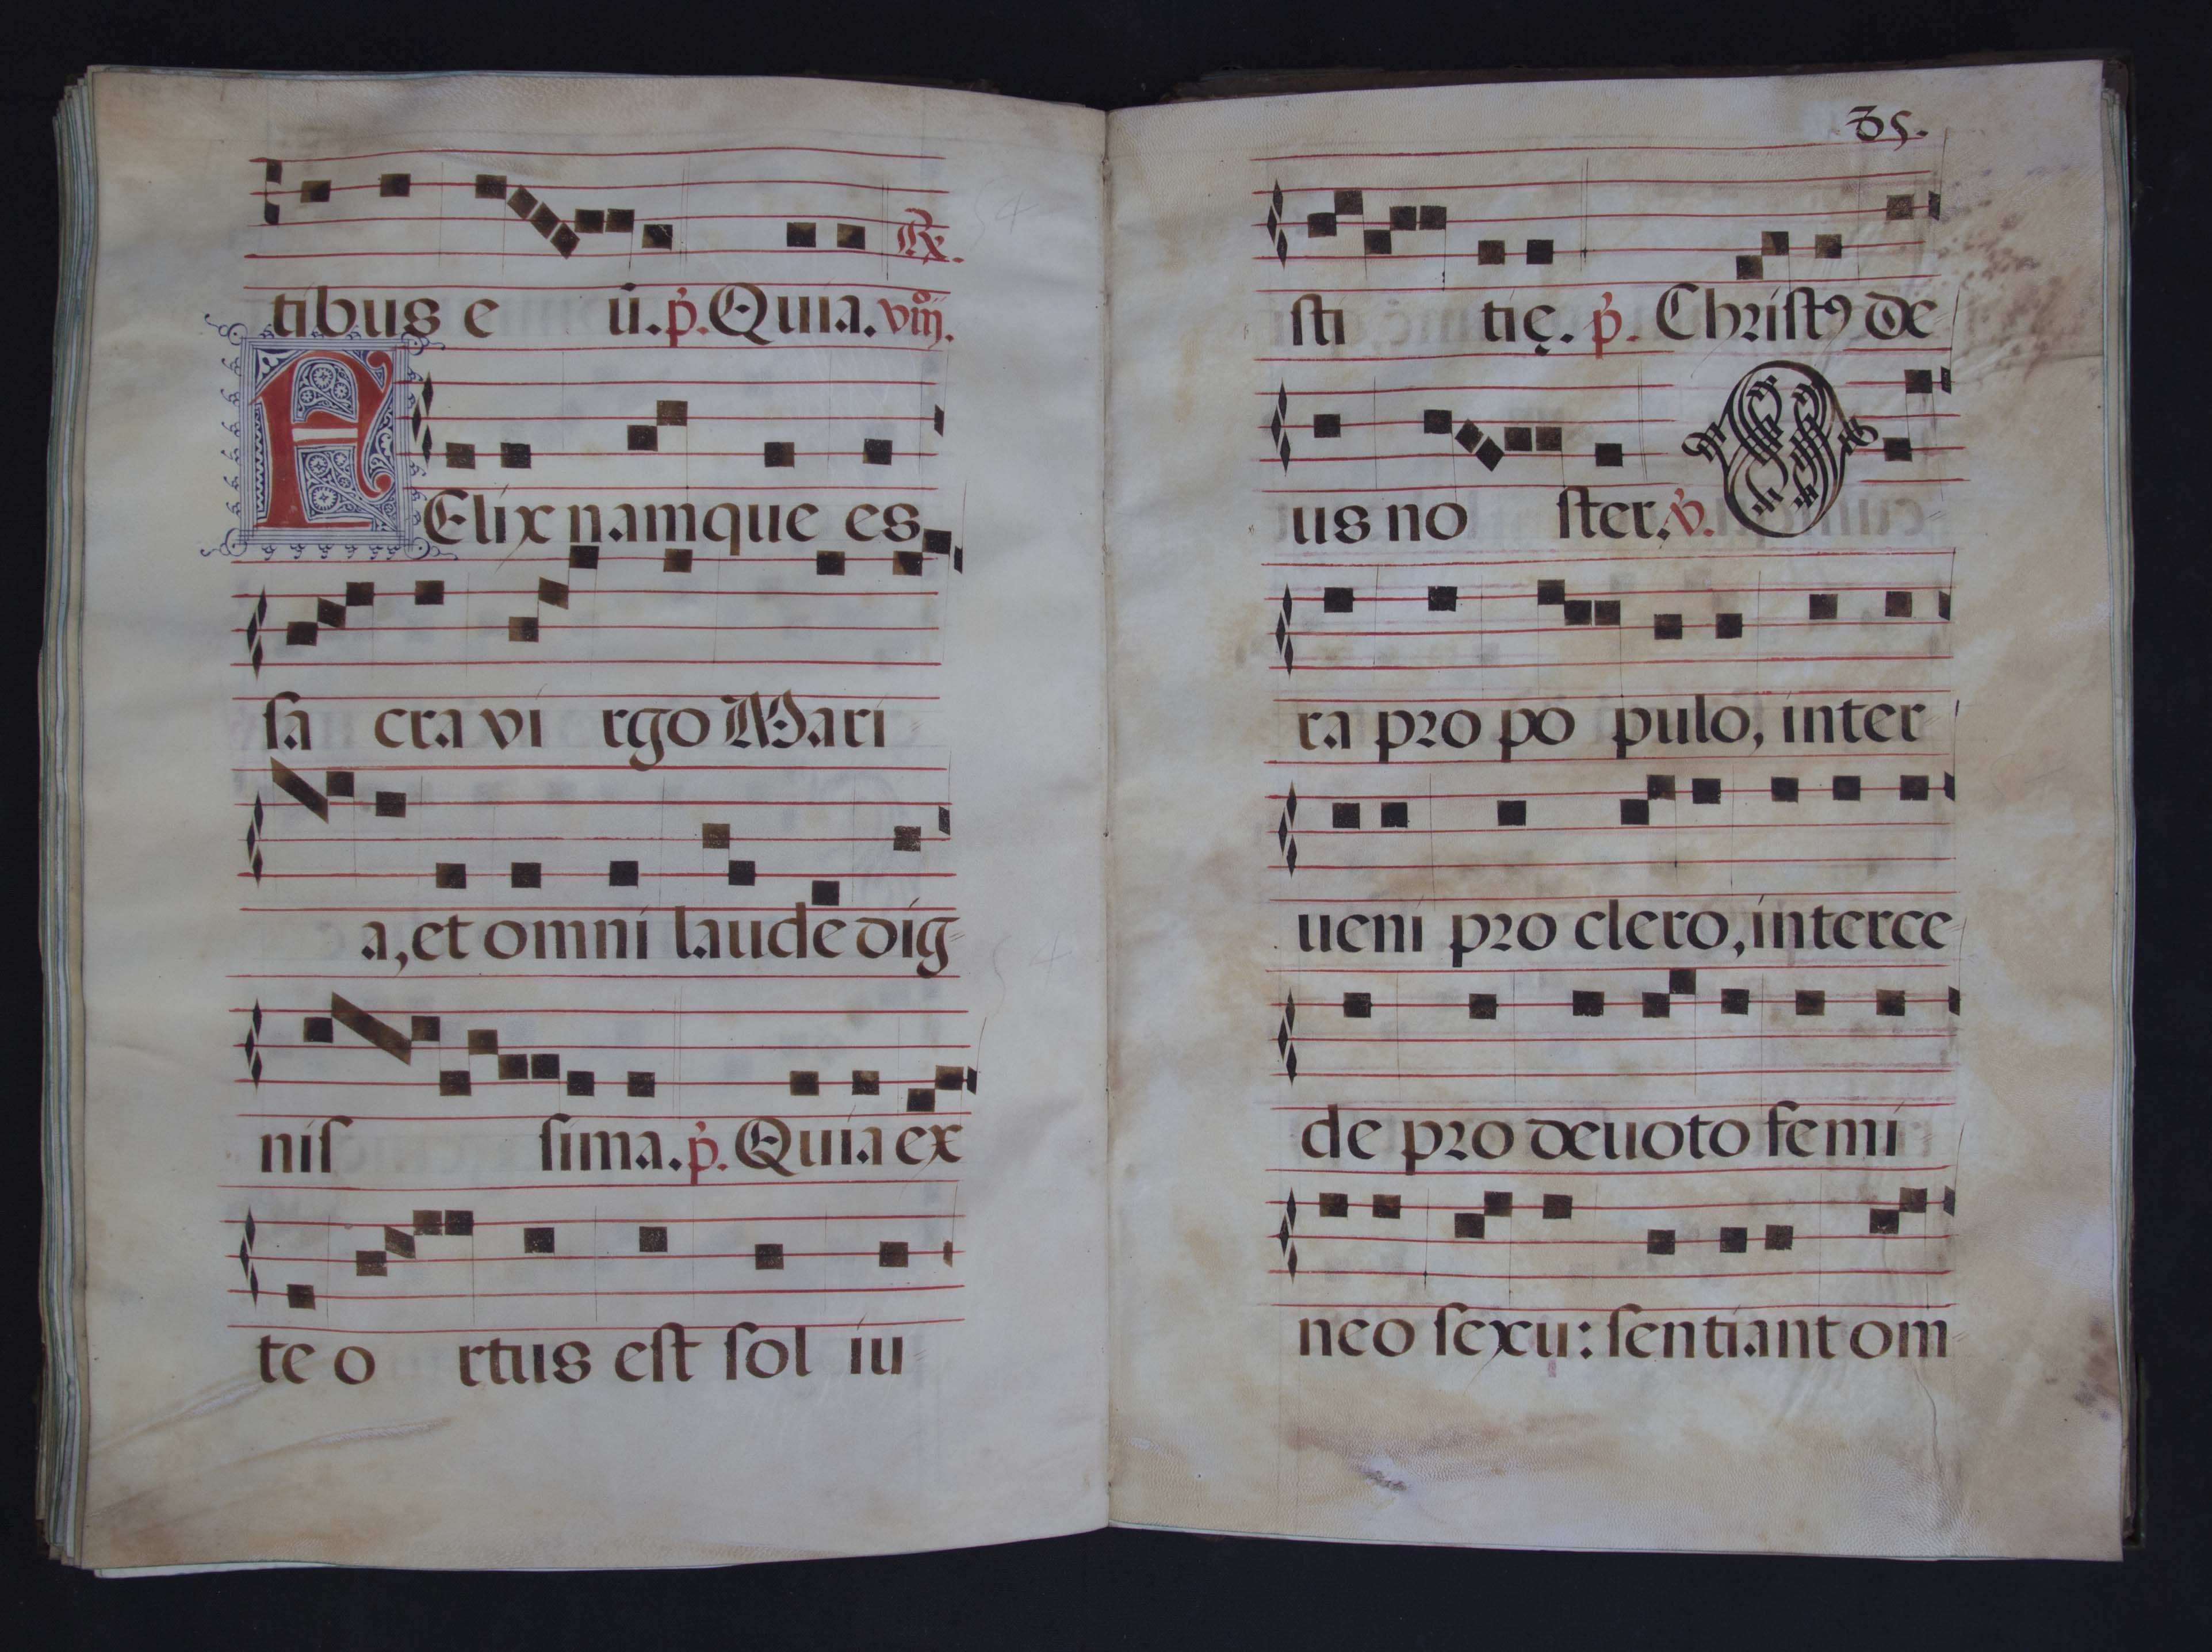 ℟.
tibus e ū. p̄. Quia. viij.
FElix namque es
sa cra vi rgo Mari
a, et omni laude dig
nis sima. p̄. Quia ex
te o rtus est sol iu
35.
sti tię. p̄. Christꝰ de
us no ster. ℣. O
ra pro po pulo, inter
ueni pro clero, interce
de pro deuoto femi
neo sexu: sentiant om